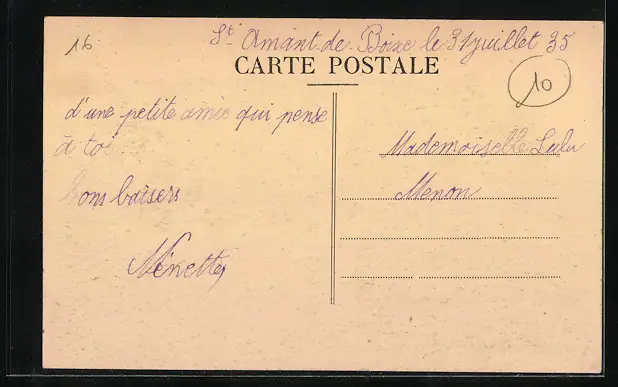 16
St Amant-de-Boixe le 31 juillet 35
CARTE POSTALE
10
d'une petite amie qui pense
à toi.
bons baisers
Ninette
Mademoiselle Lulu
Menon